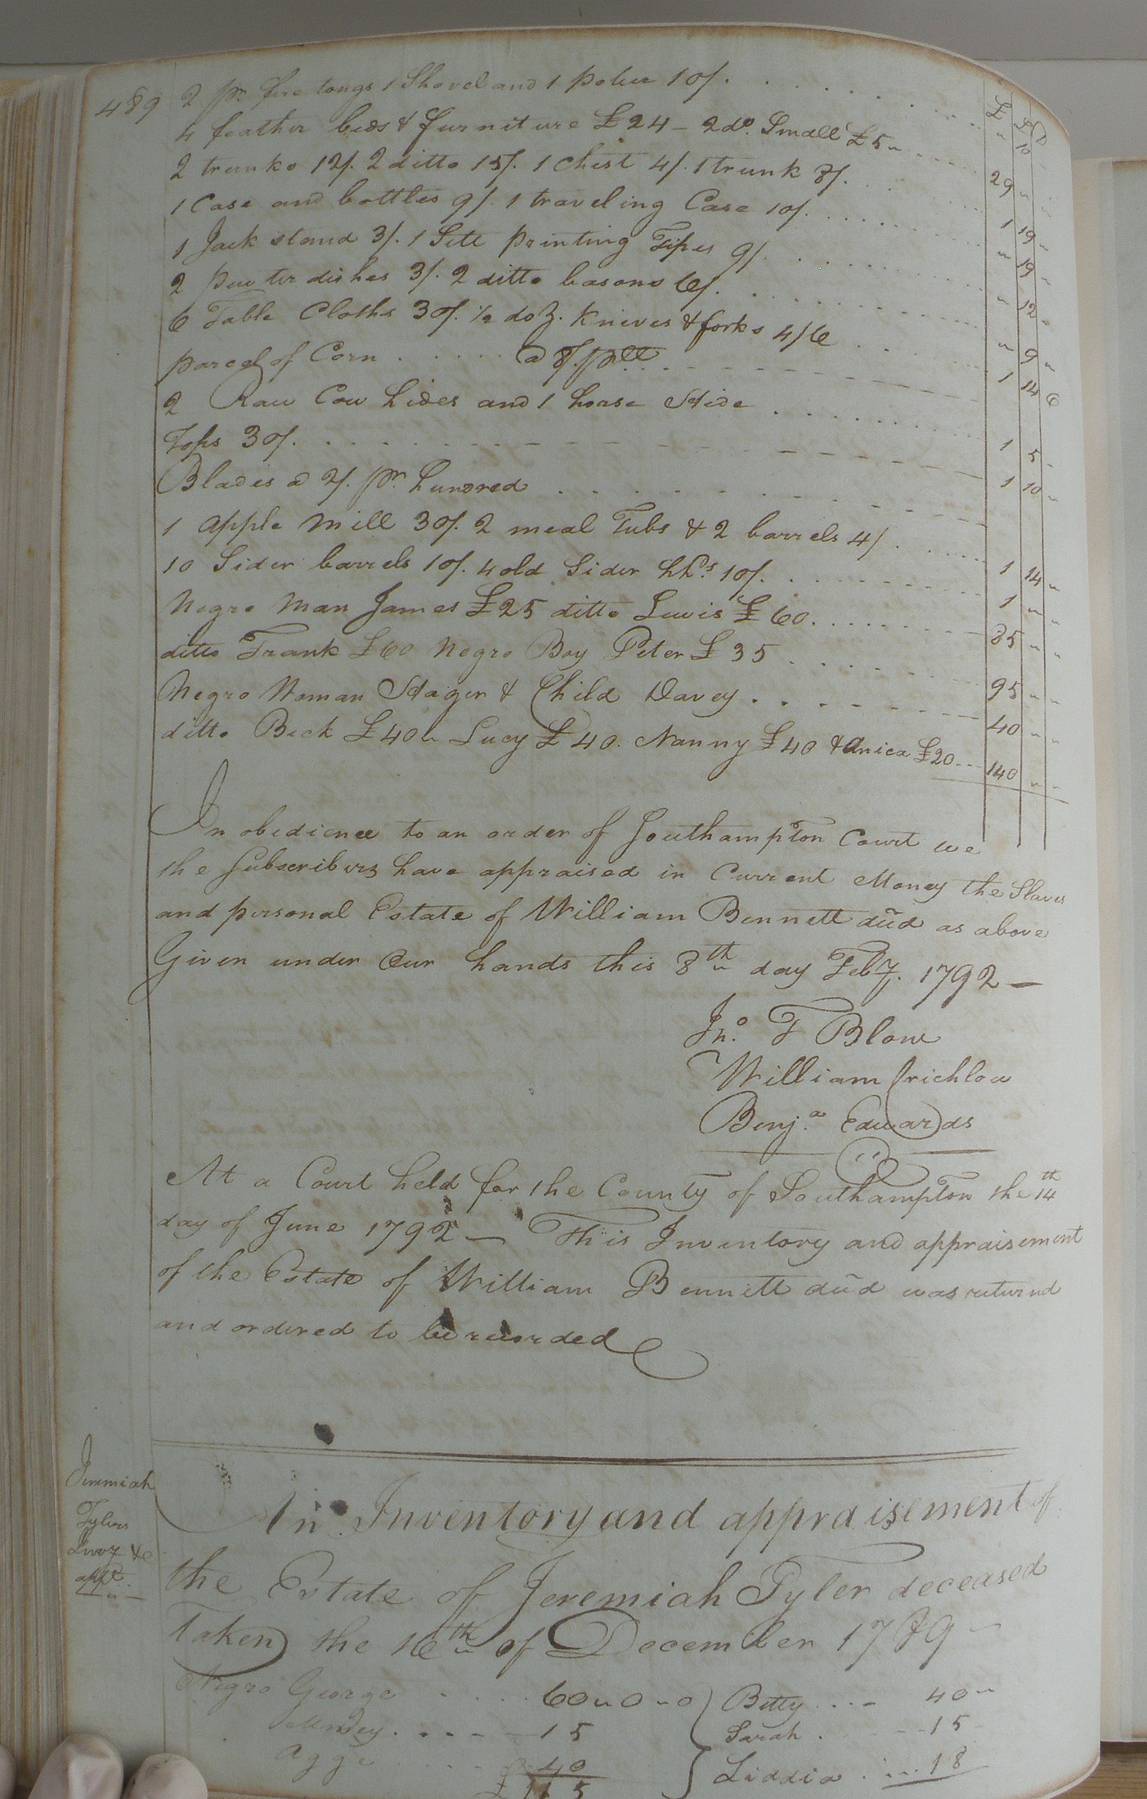 489
£ S D
2 pr. fire tongs 1 Shovel and 1 poker 10/. " 10
4 feather beds & furniture £24 - 2 do. Small £5 " 29 "
2 trunks 12/. 2 ditto 15/. 1 Chest 4/. 1 trunk 8/. 1 19 "
1 Case and bottles 9/. 1 traveling Case 10/. " 19 "
1 Jack stand 3/. 1 Sett printing Tipes 9/. " 12 "
2 pewter dishes 3/. 2 ditto basons 6/. " 9 "
6 Table Cloths 30/. ½ doz. Knives & forks 4/6 1 14 6
parcel of Corn
2 Raw Cow hides and 1 horse Hide 1 5 "
Tops 30/. 1 10 "
Blades @ 2/. pr. hundred
1 apple mill 30/. 2 meal Tubs & 2 barrels 4/. 1 14 "
10 Sider barrels 10/. 4 old Sider hhds. 10/. 1 " "
Negro Man James £25 ditto Lewis £60. 85 " "
ditto Frank £60 Negro Boy Peter £35 95 " "
Negro Woman Hager & Child Davey. 40 " "
ditto Beck £40 " Lucy £40. Nanny £40 & Anica £20 140 " "
In obedience to an order of Southampton Court we
the Subscribers have appraised in Current Money the Slaves
and personal Estate of William Bennett decd as above
Given under Our hands this 8th day Feby. 1792 —
Jno. T Blow
William Crichloa
Benja. Edwards
At a Court held for the County of Southampton the 14th
day of June 1792 — This Inventory and appraisement
of the Estate of William Bennett decd was returnd
and ordered to be recorded
Jeremiah
Tylers
Invy &c
appt.
An Inventory and appraisement of
the Estate of Jeremiah Tyler deceased
Taken the 16th of December 1789
Negro George 60 " 0 " 0 Betty 40 "
15 Sarah 15
Agge 40 Liddia 18
£115